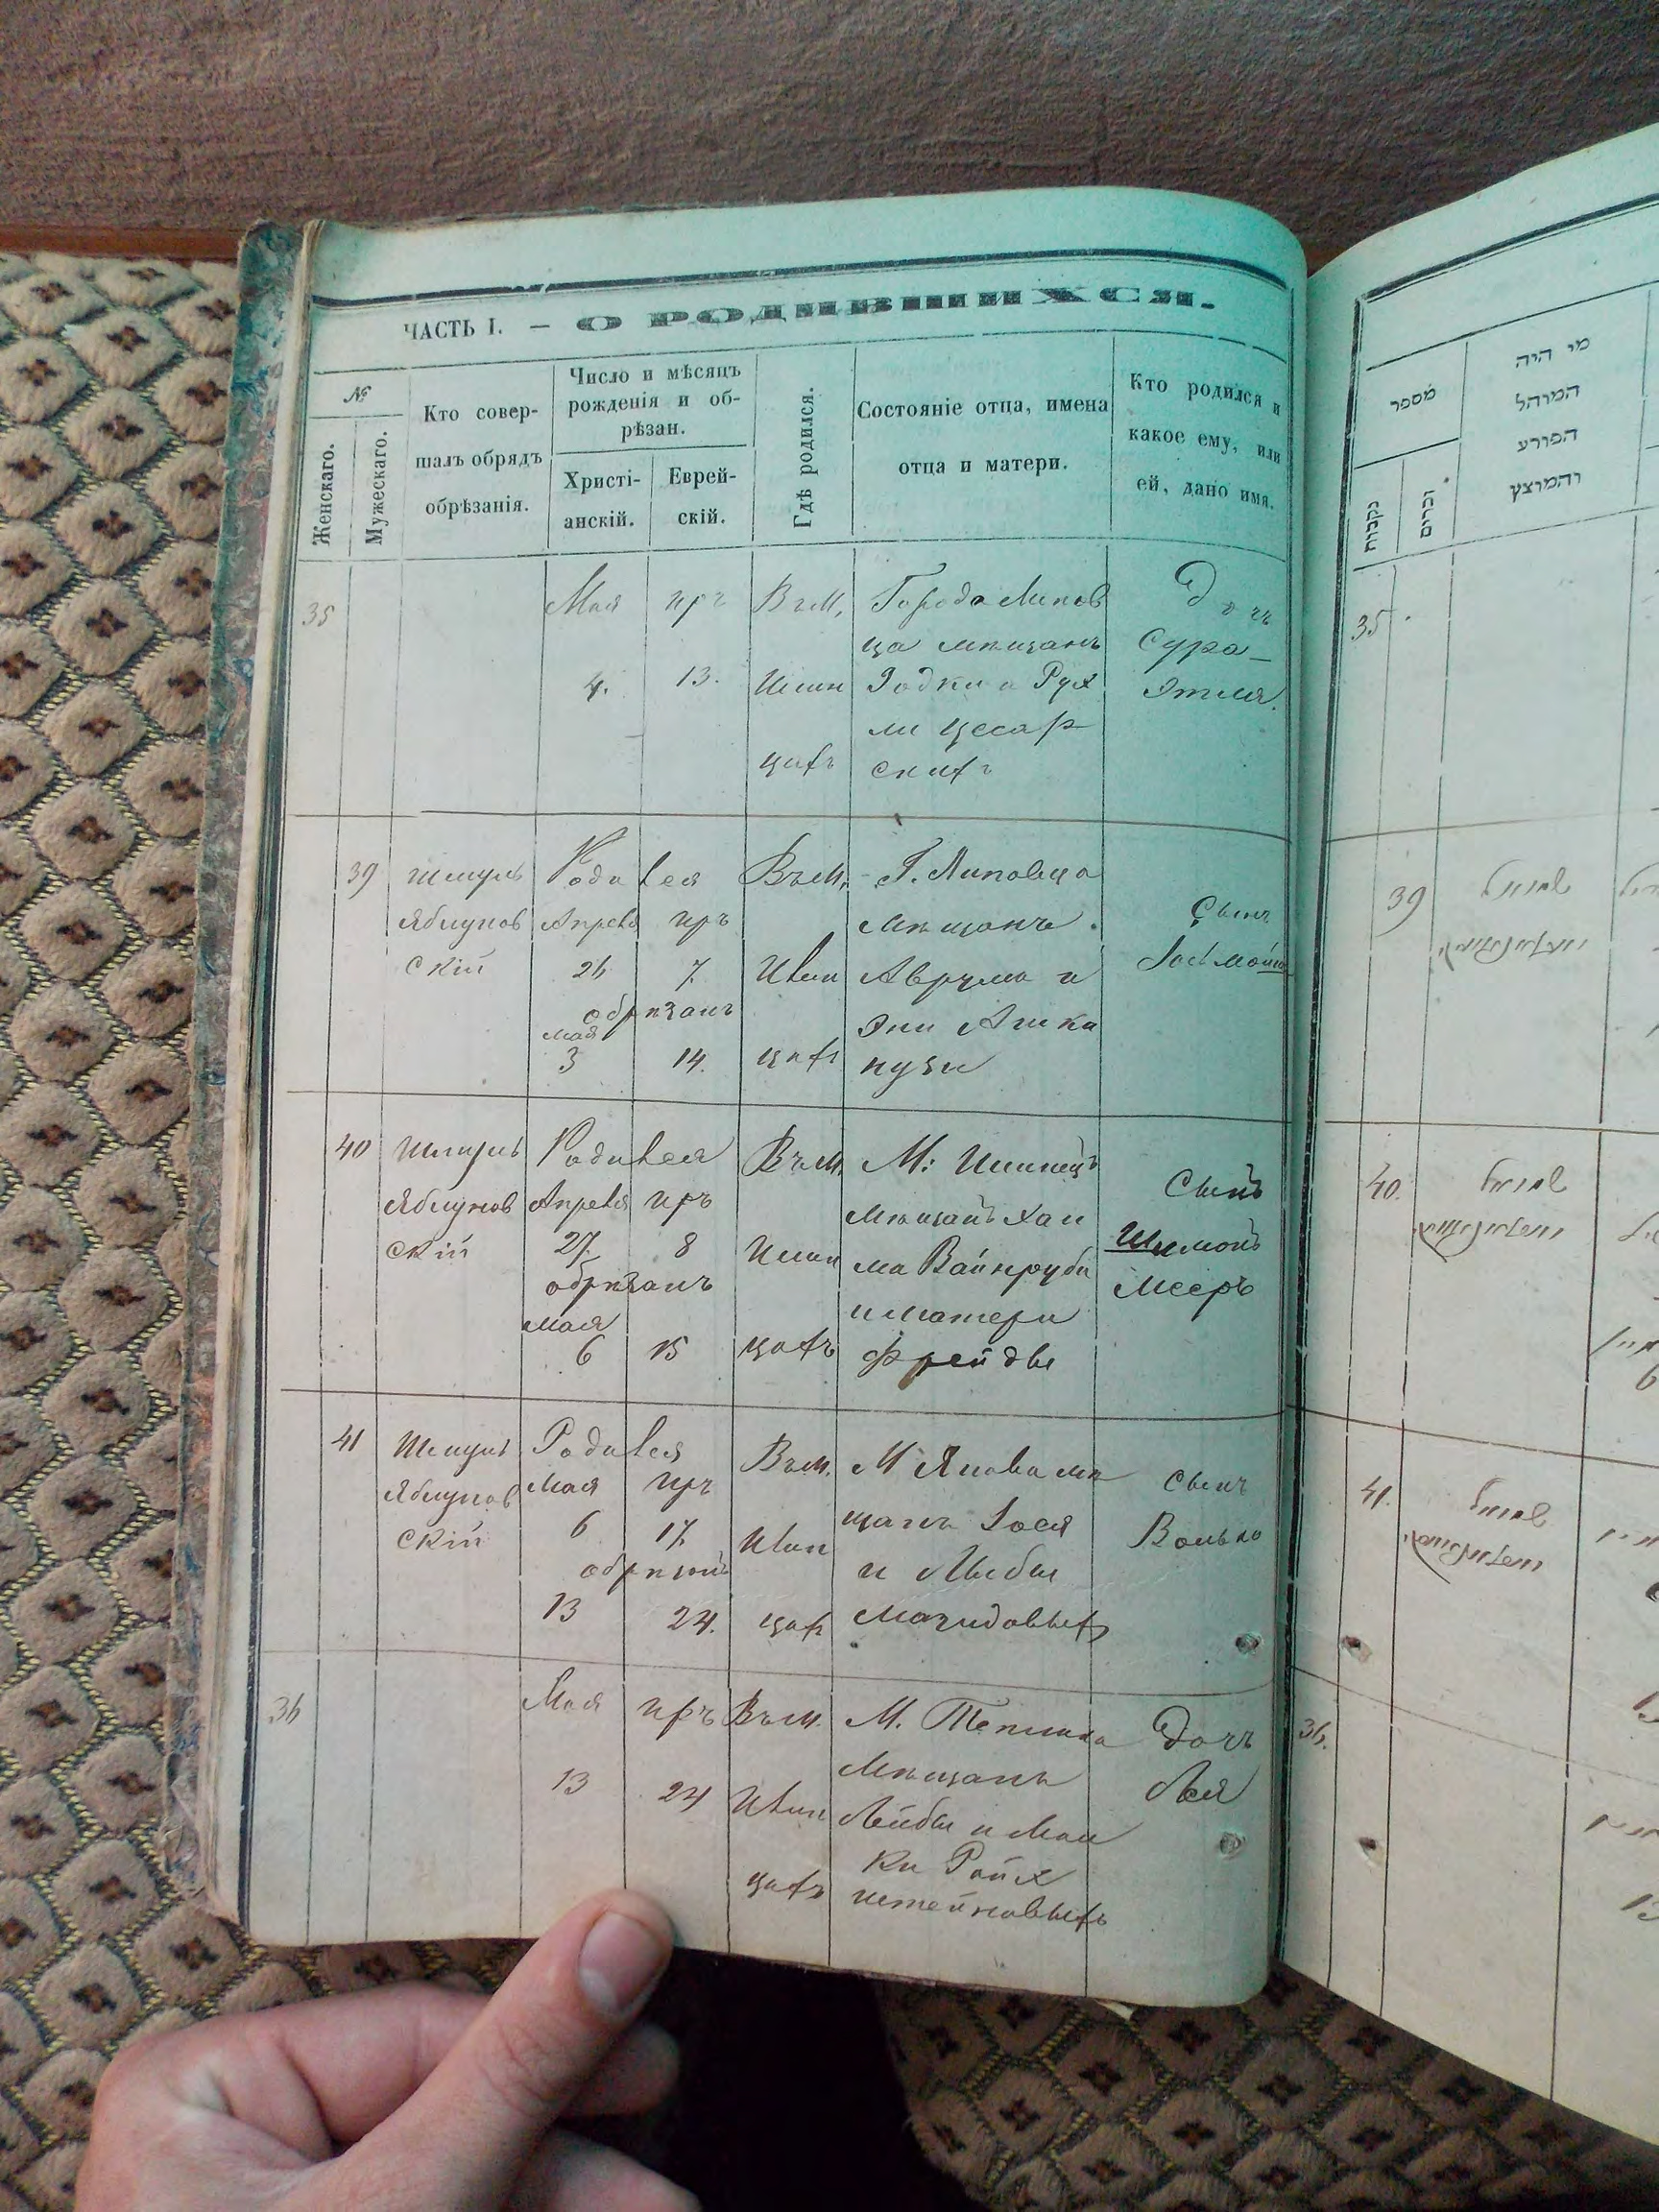 ЧАСТЬ I. — О РОДИВШИХСЯ.
№
Женскаго.
Мужескаго.
Кто совер-
шалъ обрядъ
обрѣзанія.
Число и мѣсяцъ
рожденія и об-
рѣзан.
Христі-
анскій.
Еврей-
скій.
Гдѣ родился.
Состояніе отца, имена
отца и матери.
Кто родился и
какое ему, или
ей, дано имя.
35
Мая
4.
иръ
13.
Въ м.
Илин
цахъ
Города Липов
ца мѣщанъ
и Рух
ли Цесар
скихъ
Дочь
Сура-
Этля.
39
Шмуль
Яблунов
скій
Родился
Апреля иръ
26 7.
обрѣзанъ
мая
3 14.
Въ м.
Илин
цахъ
Г. Липовца
мѣщанъ
Аврума и
Эни Ашка
нузи
Сынъ
40
Шмуль
Яблунов
скій
Родился
Апреля иръ
27. 8
обрѣзанъ
мая
6 15
Въ м.
Илин
цахъ
М: Илинецъ
мѣщанъ Хаи
ма Вайнруба
и матери
Фрейды
Сынъ
Шимонъ
Мееръ
41
Шмуль
Яблунов
скій
Родился
мая иръ
6 17.
обрѣзанъ
13 24.
Въ м.
Илин
цахъ
М Янова мѣ
щанъ Іося
и Либы
Магидовыхъ
Сынъ
Волько
36
Мая
13
иръ
24
Въ м.
Илин
цахъ
М. Теплика
мѣщанъ
Лейбы и Мал
ки Райх
штейновыхъ
Дочь
Лея
מספר
נקבות
זכרים
מי היה
המוהל
הפורע
והמוצץ
35
39
שמואל
40.
שמואל
41.
שמואל
36.